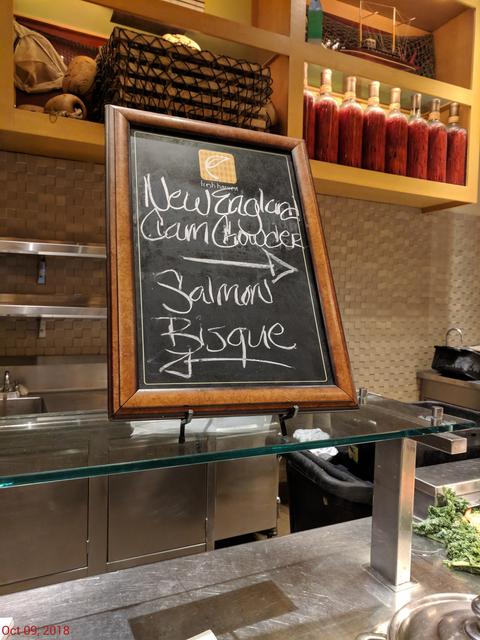 fresh harvest
New England
Cam Chowder
Salmon
Bisque
Oct 09, 2018